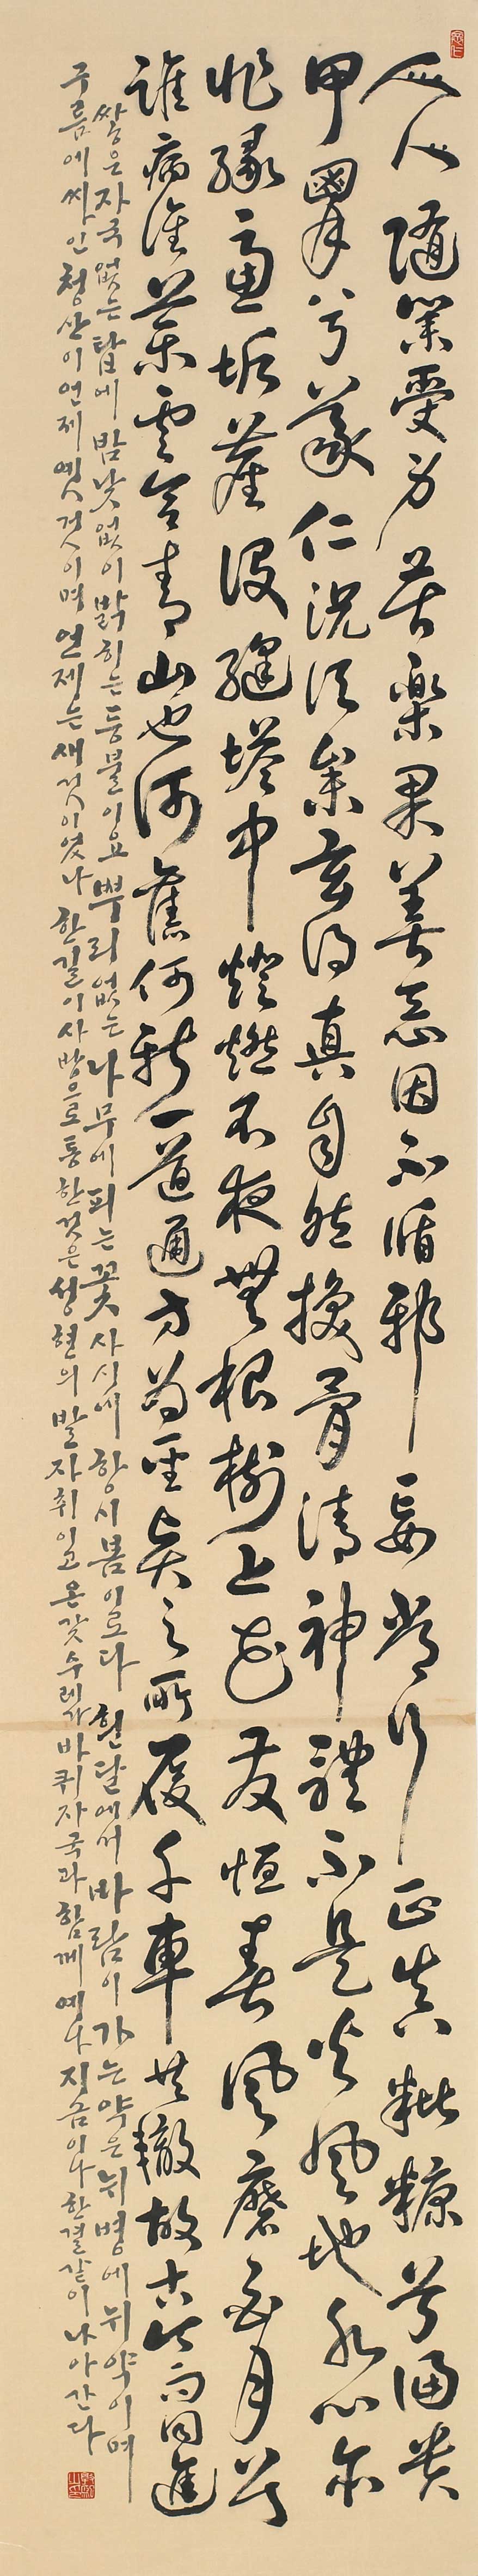 人人隨業受身苦樂果善惡因不循邪妄常行正眞粃糠兮富貴
甲兮義仁況須參玄得真自然換骨清神體不是火風地水心亦
非緣慮垢塵沒縫塔中燈燃不夜無根樹上花發恒春風磨白月兮
誰病誰藥雲合青山也何舊何新一道通方為聖賢之所履千車共轍故古今而同進
쌓은 자국 없는 탑에 밤낮 없이 밝히는 등불이요 뿌리 없는 나무에 피는 꽃 사시에 항시 봄이로다 흰달에서 바람이 가는 약은 뉘 병에 뉘 약이며
구름에 싸인 청산이 언제 옛것이며 언제는 새것이었나 한길이 사방으로 통한 것은 성현의 발자취이고 온갖 수레가 바퀴자국과 함께 예나 지금이나 한결같이 나아간다